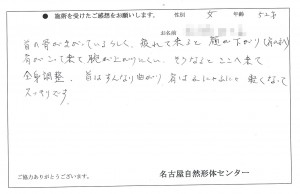 ● 施術を受けたご感想をお願いします。 性別 女 年齢 52才
お名前
首の骨が曲がっているらしく、疲れて来ると 頭が下がり
肩がこって来て腕が上がりにくい。そうなると ここへ来て
全身調整。首はすんなり曲がり 肩はふにゃふにゃ 軽くなって
スッキリです。
ご協力ありがとうございます。 名古屋自然形体センター